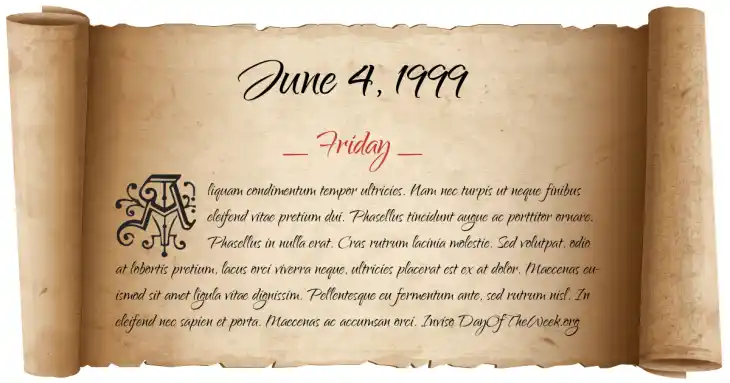 June 4, 1999
_ Friday _
Aliquam condimentum tempor ultricies. Nam nec turpis ut neque finibus
eleifend vitae pretium dui. Phasellus tincidunt augue ac porttitor ornare.
Phasellus in nulla erat. Cras rutrum lacinia molestie. Sed volutpat, odio
at lobortis pretium, lacus orci viverra neque, ultricies placerat est ex at dolor. Maecenas eu-
ismod sit amet ligula vitae dignissim. Pellentesque eu fermentum ante, sed rutrum nisl. In
eleifend nec sapien et porta. Maecenas ac accumsan orci. Invise DayOfTheWeek.org